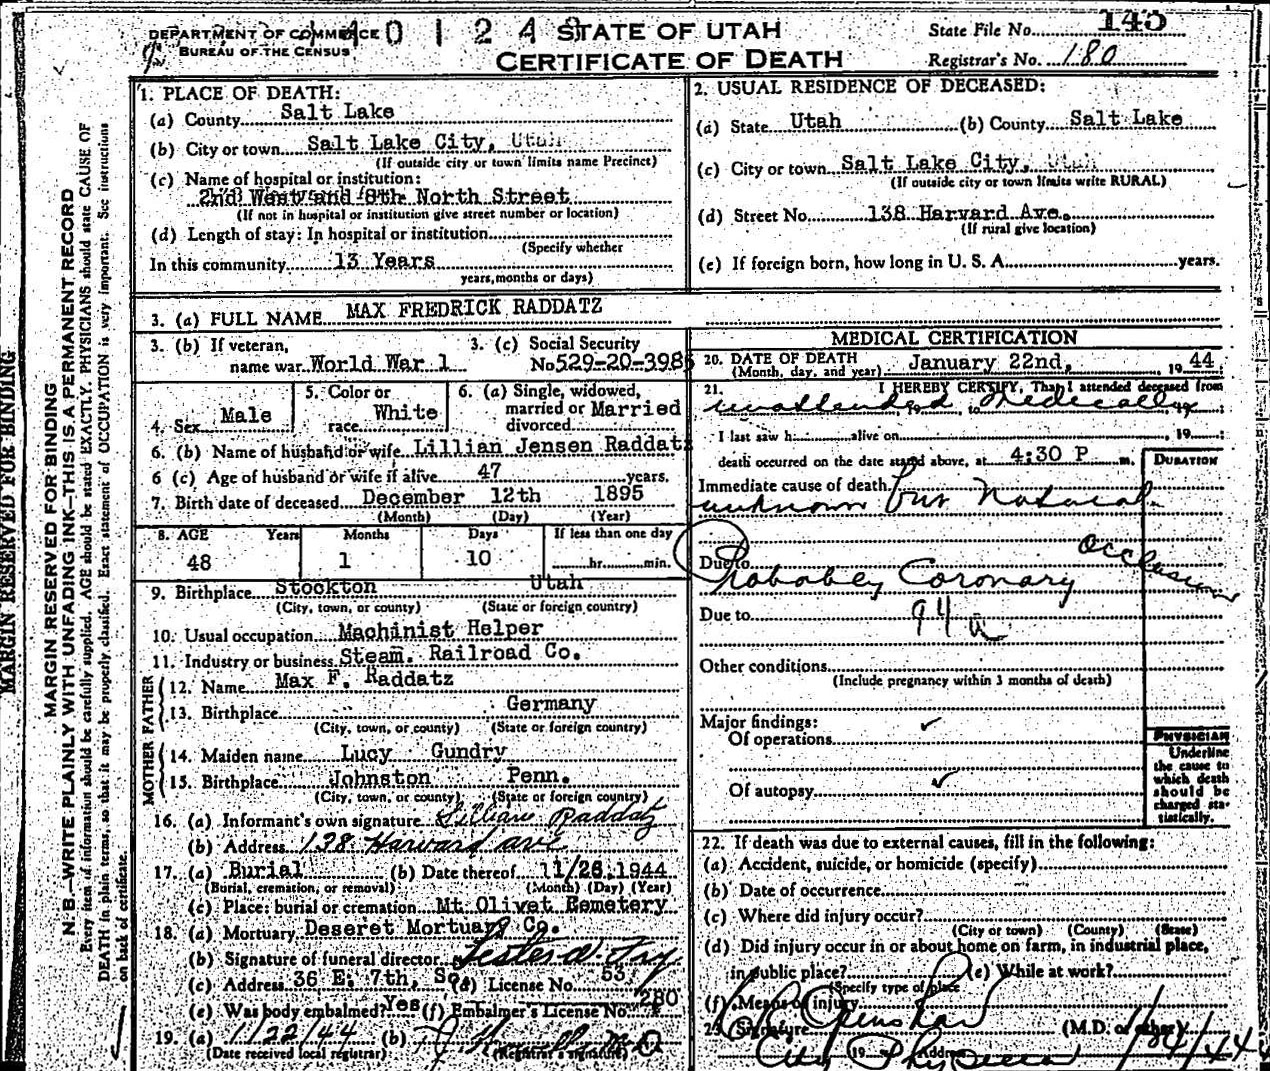 DEPARTMENT OF COMMERCE
BUREAU OF THE CENSUS
STATE OF UTAH
CERTIFICATE OF DEATH
State File No. 145
Registrar's No. 180
MARGIN RESERVED FOR BINDING
MARGIN RESERVED FOR BINDING
N. B.—WRITE PLAINLY WITH UNFADING INK—THIS IS A PERMANENT RECORD
Every item of information should be carefully supplied. AGE should be stated EXACTLY. PHYSICIANS should state CAUSE OF
DEATH in plain terms, so that it may be properly classified. Exact statement of OCCUPATION is very important. See instructions
on back of certificate.
1. PLACE OF DEATH:
(a) County Salt Lake
(b) City or town Salt Lake City, Utah
(If outside city or town limits name Precinct)
(c) Name of hospital or institution:
2nd West and 8th North Street
(If not in hospital or institution give street number or location)
(d) Length of stay: In hospital or institution
(Specify whether
In this community 13 Years
years, months or days)
2. USUAL RESIDENCE OF DECEASED:
(a) State Utah (b) County Salt Lake
(c) City or town Salt Lake City, Utah
(If outside city or town limits write RURAL)
(d) Street No. 138 Harvard Ave.
(If rural give location)
(e) If foreign born, how long in U. S. A. years.
3. (a) FULL NAME MAX FREDRICK RADDATZ
3. (b) If veteran, 3. (c) Social Security
name war World War 1 No 529-20-3985
4. Sex Male 5. Color or race White 6. (a) Single, widowed, married or divorced Married
6. (b) Name of husband or wife Lillian Jensen Raddatz
6 (c) Age of husband or wife if alive 47 years.
7. Birth date of deceased December 12th 1895
(Month) (Day) (Year)
8. AGE Years Months Days If less than one day
48 1 10 hr. min.
9. Birthplace Stockton Utah
(City, town, or county) (State or foreign country)
10. Usual occupation Machinist Helper
11. Industry or business Steam. Railroad Co.
FATHER
12. Name Max F. Raddatz
13. Birthplace Germany
(City, town, or county) (State or foreign country)
MOTHER
14. Maiden name Lucy Gundry
15. Birthplace Johnston Penn.
(City, town, or county) (State or foreign country)
16. (a) Informant's own signature Lillian Raddatz
(b) Address 138 Harvard ave
17. (a) Burial (b) Date thereof 11/26,1944
(Burial, cremation, or removal) (Month) (Day) (Year)
(c) Place: burial or cremation Mt Olivet Cemetery
18. (a) Mortuary Deseret Mortuary Co.
(b) Signature of funeral director
(c) Address 36 E. 7th, So. (d) License No. 53
(e) Was body embalmed? Yes (f) Embalmer's License No. 280
19. (a) 1/22/44 (b) M.D
(Date received local registrar) (Registrar's signature)
MEDICAL CERTIFICATION
20. DATE OF DEATH January 22nd, 1944
(Month, day, and year)
21. I HEREBY CERTIFY, That I attended deceased from
unattended 19 to Medically 19
I last saw h alive on , 19
death occurred on the date stated above, at 4:30 P m.
DURATION
Immediate cause of death
unknown but Natural
Due to Probabley Coronary occlusion
Due to 94a
Other conditions
(Include pregnancy within 3 months of death)
Major findings:
Of operations
Of autopsy
PHYSICIAN
Underline
the cause to
which death
should be
charged sta-
tistically.
22. If death was due to external causes, fill in the following:
(a) Accident, suicide, or homicide (specify)
(b) Date of occurrence
(c) Where did injury occur?
(City or town) (County) (State)
(d) Did injury occur in or about home on farm, in industrial place,
in public place? (e) While at work?
(Specify type of place
(f) Means of injury
23. Signature (M.D. or other)
City Physician Address